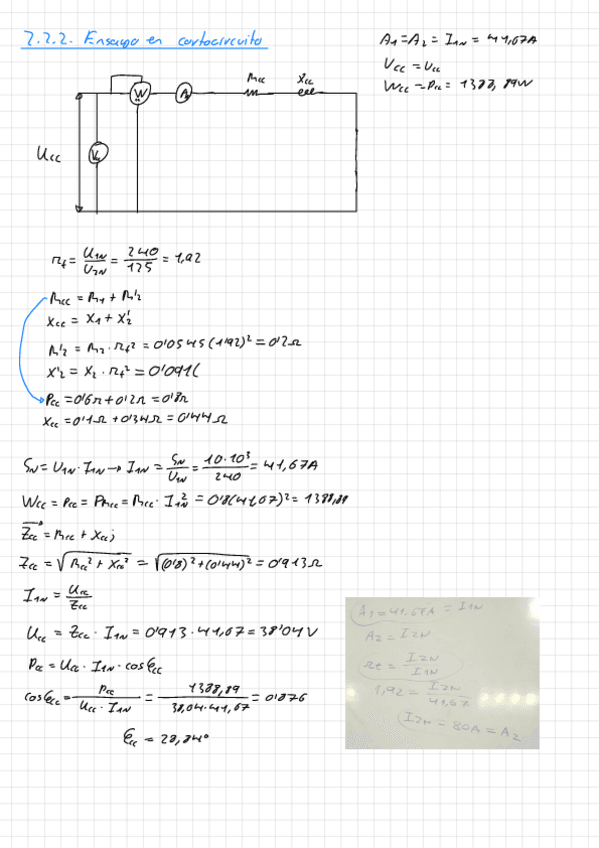 2.2.2. Ensayo en cortocircuito
A1=A2 = I1N = 41,67A
Ucc = Ucc
Wcc = Pcc = 1388,89W
W A Rcc Xcc
Ucc V
rt = U1N/U2N = 240/125 = 1,92
Rcc = R1 + R'2
Xcc = X1 + X'2
R'2 = R2 · rt² = 0'0545(1'92)² = 0'2Ω
X'2 = X2 · rt² = 0'091(
Rcc = 0'6Ω + 0'2Ω = 0'8Ω
Xcc = 0'1Ω + 0'34Ω = 0'44Ω
SN = U1N · I1N → I1N = SN/U1N = 10·10³/240 = 41,67A
Wcc = Pcc = PRcc = Rcc · I1N² = 0'8(41,67)² = 1388,89
Zcc = Rcc + Xccj
Zcc = √(Rcc² + Xcc²) = √((0'8)² + (0'44)²) = 0'913Ω
I1N = Ucc/Zcc
Ucc = Zcc · I1N = 0'913 · 41,67 = 38'04V
Pcc = Ucc · I1N · cosφcc
cosφcc = Pcc/(Ucc · I1N) = 1388,89/(38,04·41,67) = 0'876
φcc = 28,84°
A1 = 41,67A = I1N
A2 = I2N
rt = I2N/I1N
1,92 = I2N/41,67
I2N = 80A = A2